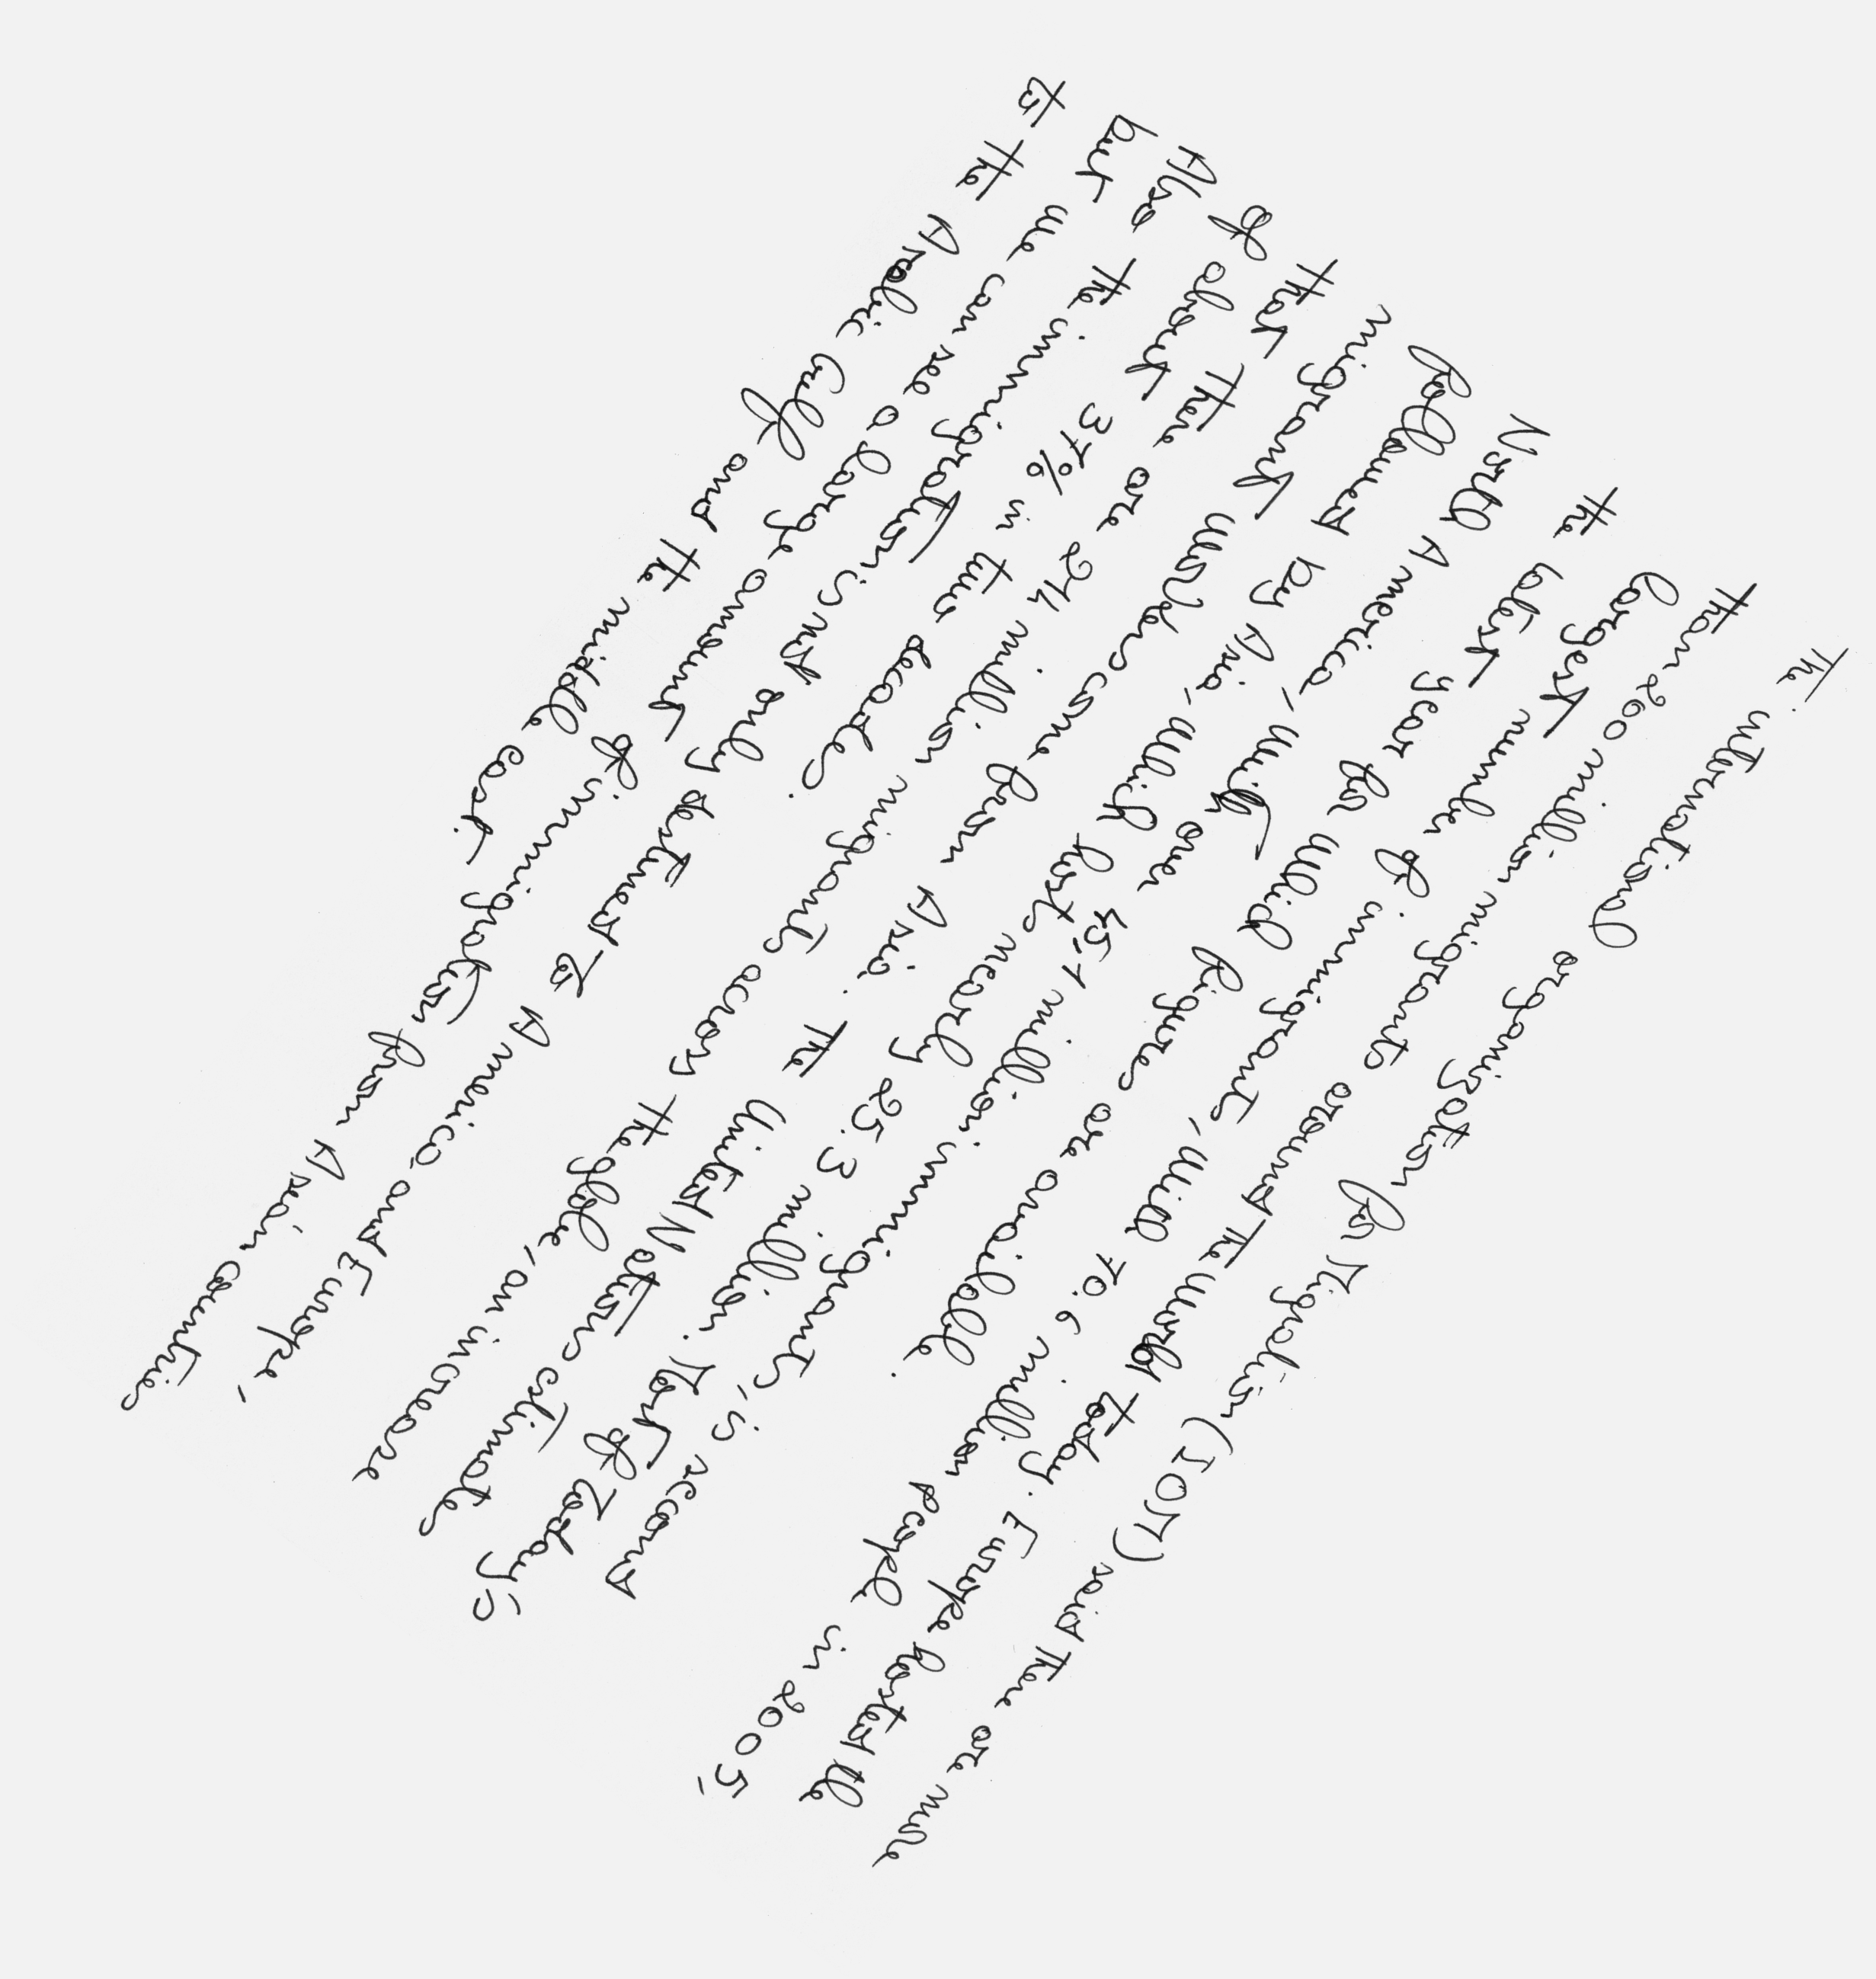 The international organisation for Migration (IOM) said there are more
than 200 million migrants around the world today. Europe hosted the
largest number of immigrants, with 70.6 million people in 2005,
the latest year for which figures are available.
North America, with over 45,1 million immigrants, is second
followed by Asia, which hosts nearly 25.3 million. Most of today's
migrant workers come from Asia. The United Nations estimates
that there are 214 million migrants across the globe, an increase
of about 37% in two decades.
Also the immigration is not only destined to America and Europe,
but we can see a large amount of immigration from Asian countries
to the Arabic Gulf and the middle east.